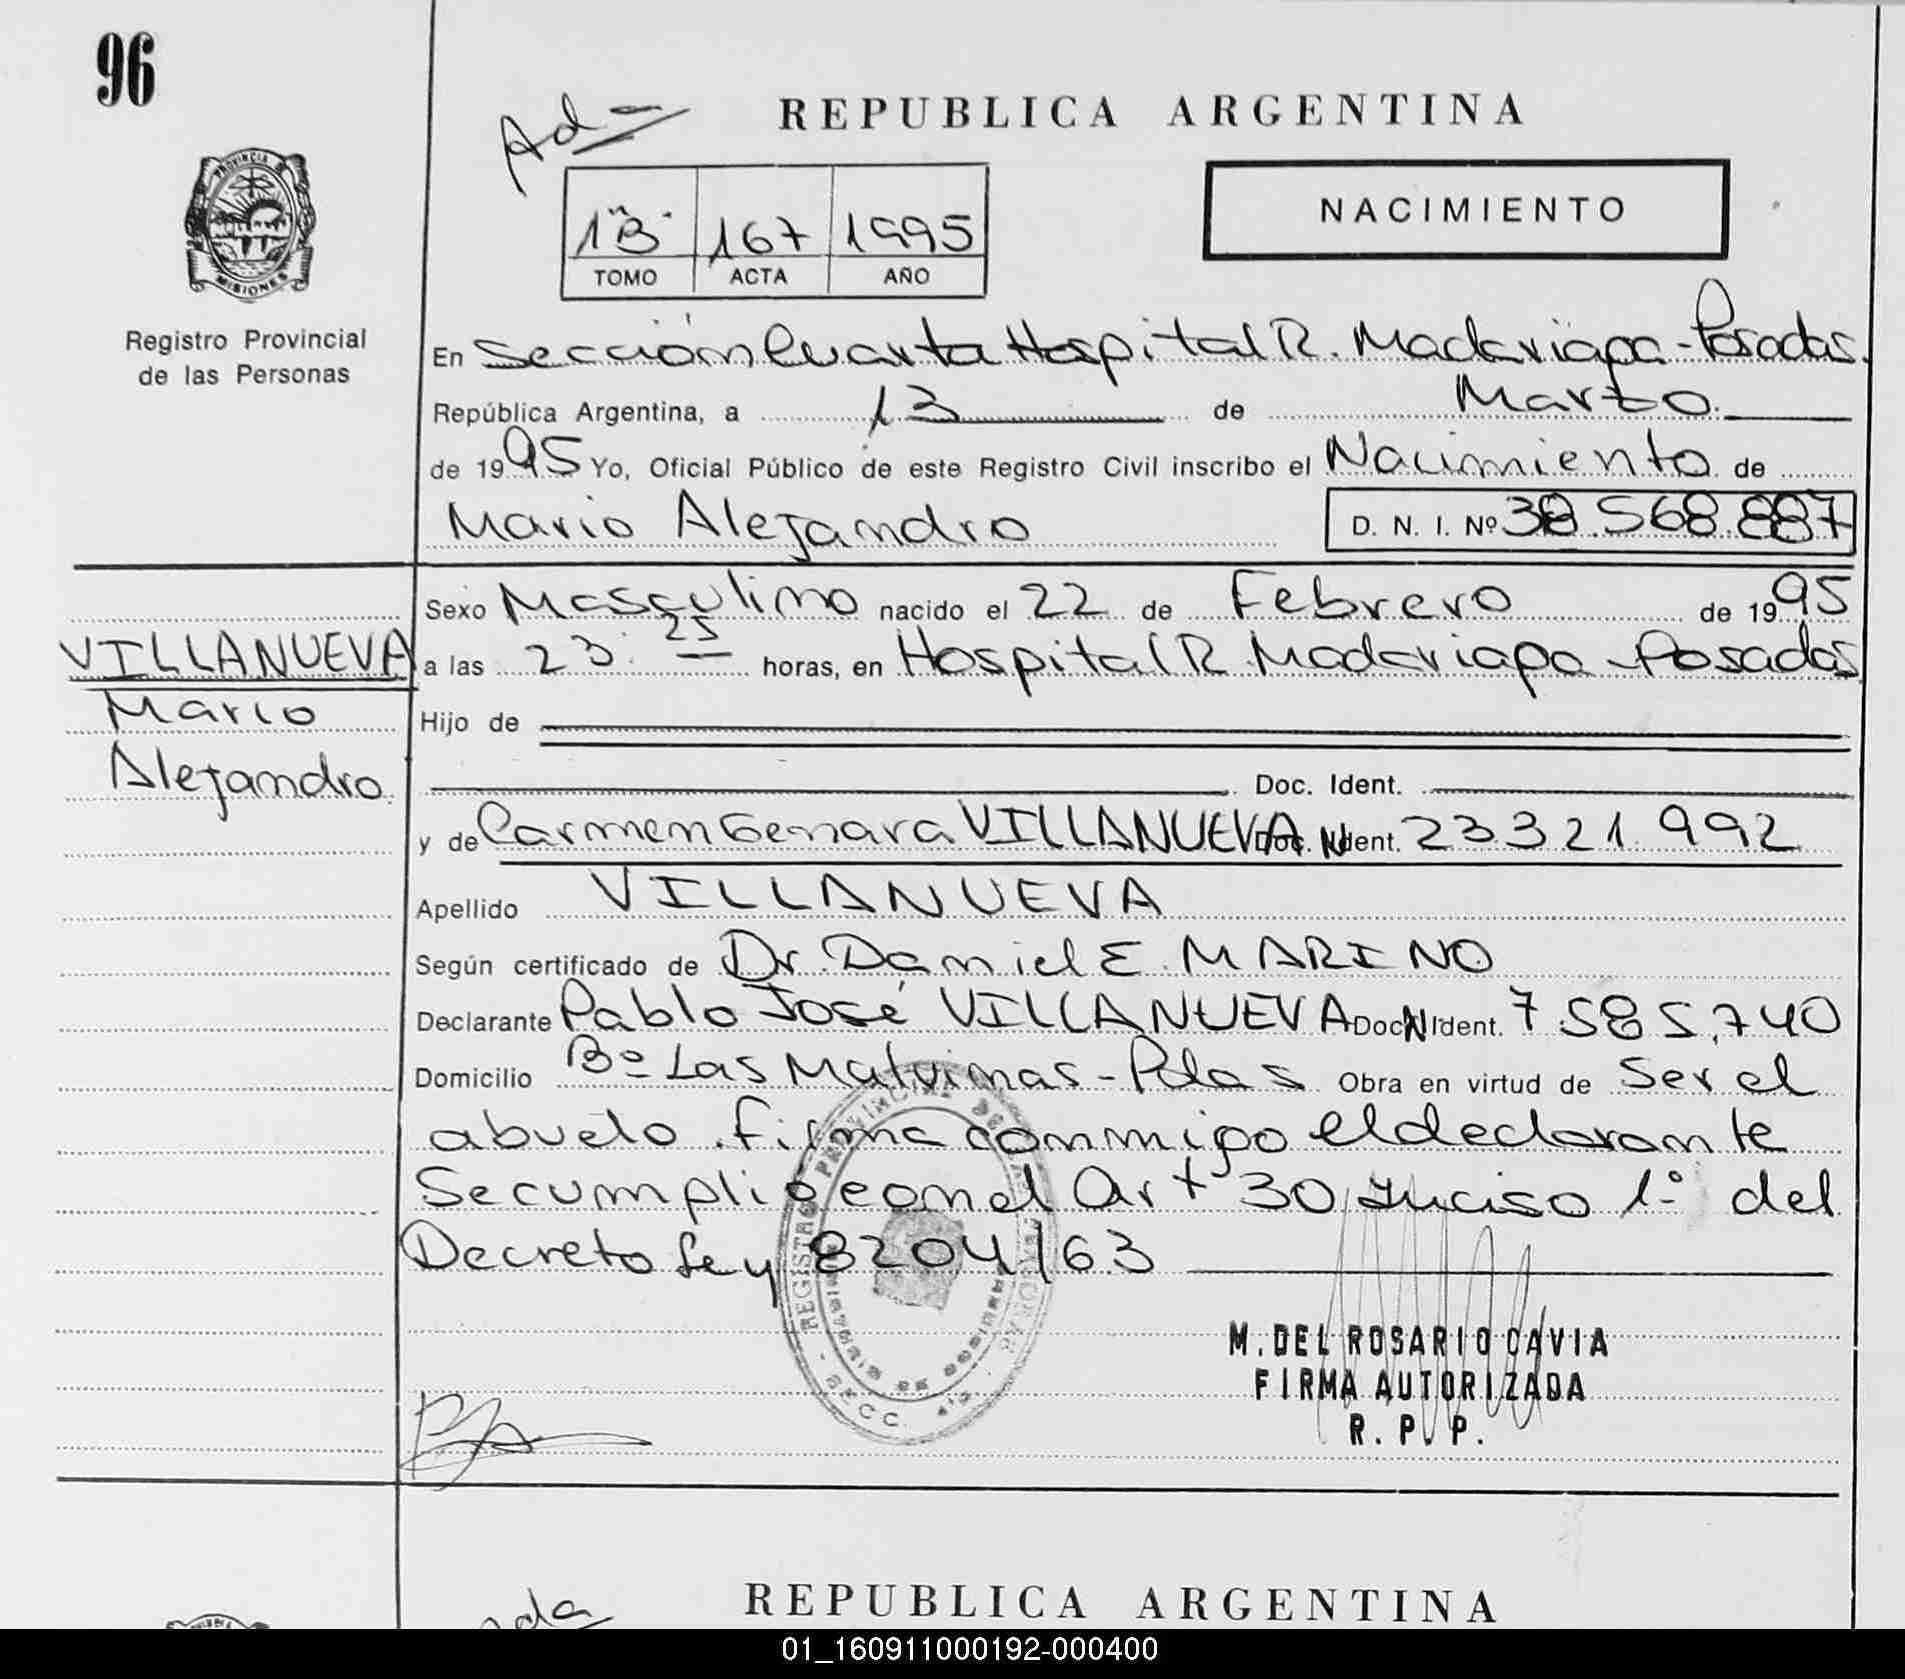 96
Ad-
REPUBLICA ARGENTINA
PROVINCIA DE
MISIONES
1"B" 167 1995
TOMO ACTA AÑO
NACIMIENTO
Registro Provincial
de las Personas
En Sección Cuarta Hospital R. Madariaga - Posadas.
República Argentina, a 13 de Marzo
de 1995 Yo, Oficial Público de este Registro Civil inscribo el Nacimiento de
Mario Alejandro D. N. I. Nº 38.568.887
Sexo Masculino nacido el 22 de Febrero de 1995
VILLANUEVA
Mario
Alejandro
a las 23: 25 horas, en Hospital R. Madariaga - Posadas
Hijo de
Doc. Ident.
y de Carmen Genara VILLANUEVA Doc. N Ident. 23321992
Apellido VILLANUEVA
Según certificado de Dr. Daniel E. MARINO
Declarante Pablo José VILLANUEVA Doc N Ident. 7 585.740
Domicilio Bº Las Malvinas - Pdas Obra en virtud de Ser el
abuelo. firma conmigo el declarante
Se cumplió con el Art 30 Inciso 1º del
Decreto Ley 8204/63
REGISTRO PROVINCIAL DE LAS
SECC. 4ta.
M. DEL ROSARIO CAVIA
FIRMA AUTORIZADA
R. P. P.
REPUBLICA ARGENTINA
01_160911000192-000400